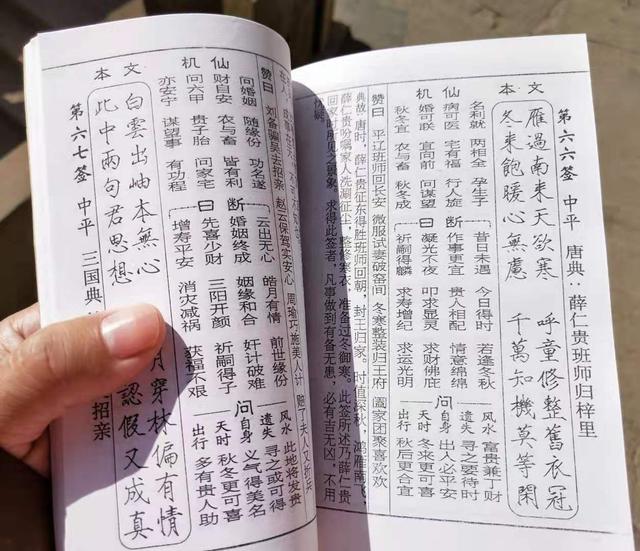 第六六签 中平 唐典：薛仁贵班师归梓里
文本
雁過南来天欲寒 呼童修整舊衣冠
冬来飽暖心無慮 千萬知機莫等閑
仙机
名利就 两相全 孕生子
病可医 宅有福 行人旋
婚可联 宜向前 问谋望
秋冬宜 农与畜 秋冬成
断曰
昔日未遇 今日得时 若逢冬秋
作事更宜 贵人相配 情意绵绵
凝光不夜 叩求显灵 求财佛庇
祈嗣得麟 求寿增纪 求运光明
问
风水 富贵兼丁财
遗失 寻之要待时
自身 出人必平安
天时 冬来更可喜
出行 秋后更合宜
赞曰 平辽班师回长安 微服试妻破窑间 冬寒整装归王府 阖家团聚喜欢欢
典故：唐时，薛仁贵征东得胜班师回朝，封王归家。时值深秋，鸿雁南飞，
薛仁贵吩嘱家人洗潮征尘，整修寒衣，准备过冬御寒。此签所述乃薛仁贵
回家时所见之景象。求得此签者，凡事做到有备无患，必有吉无凶，不用
赞曰 刘备骗吴去招亲 赵云保驾实安心 周瑜巧施美人计 赔了夫人又折兵
仙机
问婚姻 随缘份 功名遂
财自安 农与畜 皆有利
问六甲 贵子胎 问家宅
亦安宁 谋望事 有功程
断曰
云出无心 皓月有情 前世缘份
婚姻终成 姻缘和合 奸计破难
先喜少财 三阳开颜 祈嗣得子
增寿平安 消灾减祸 获福不艰
问
风水 此地将发贵
遗失 寻之或可得
自身 义气得美名
天时 秋冬更可喜
出行 多有贵人助
文本
白雲出岫本無心 月穿林偏有情
此中兩句君思想 認假又成真
第六七签 中平 三国典 招亲